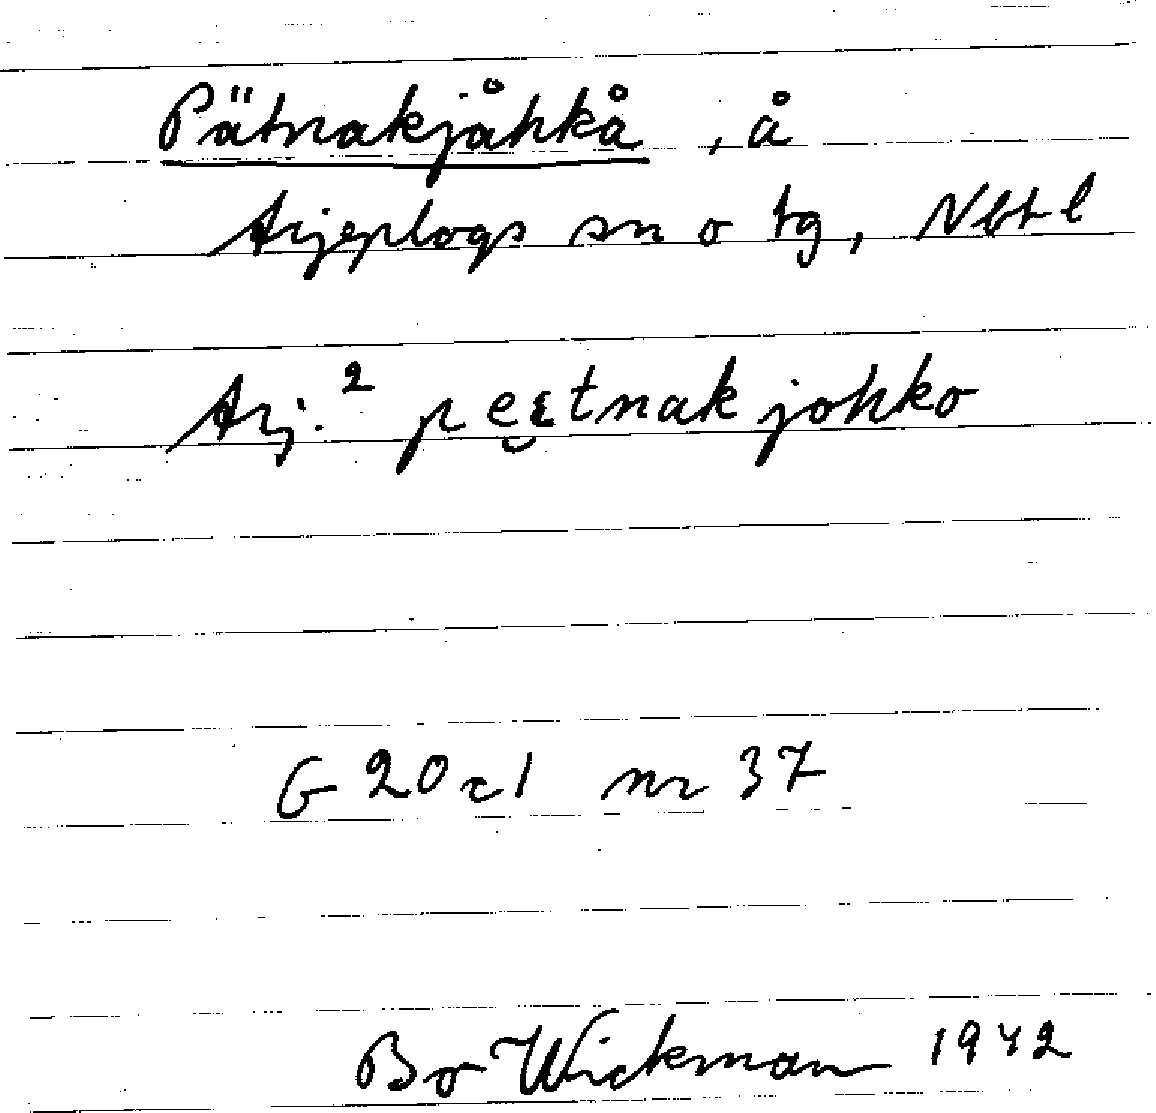 Pätnakjåhkå, å
Arjeplogs sn o tg, Nbt l
Arj.² pe̮ɛtnakjohko
G 20 c1 nr 37
Bo Wickman 1942